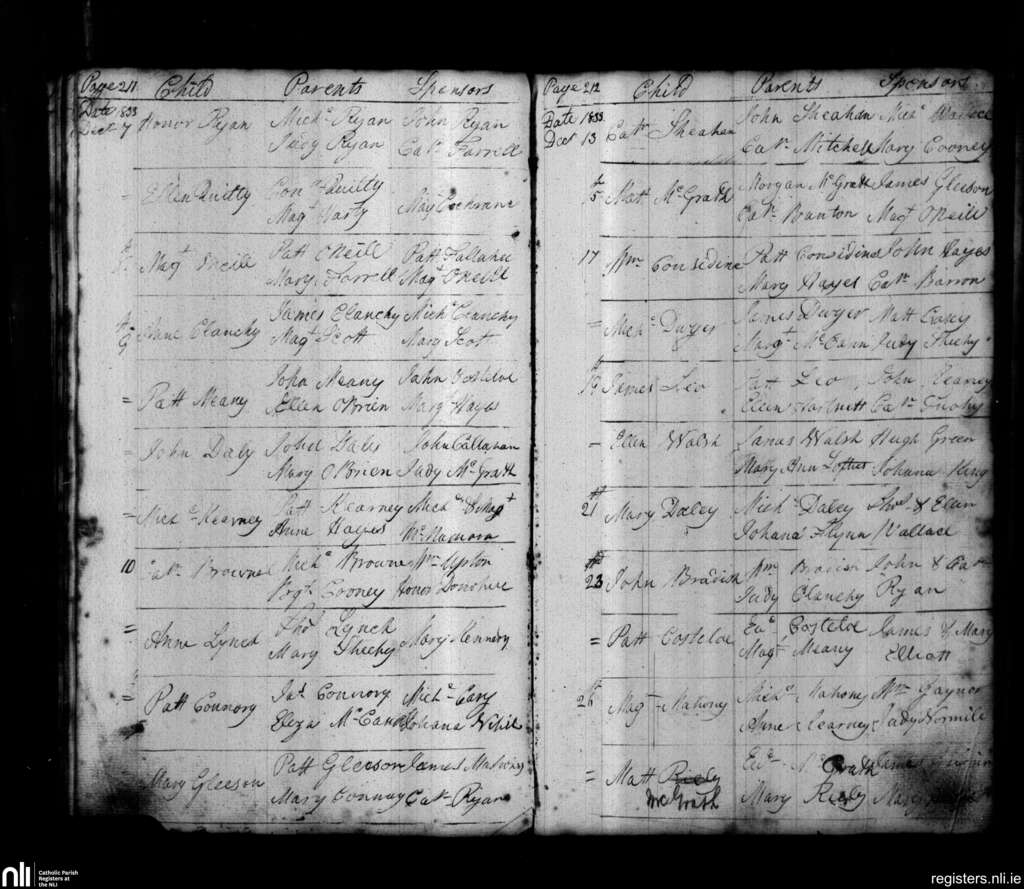 Page 211 Child Parents Sponsors
Date 1833
Decr 7 Honor Ryan Michl Ryan John Ryan
Judy Ryan Cathn Farrell
= Ellen Quilty Conr Quilty
Magt Harty May Cochrane
Magt Patt ONeill Patt Fallahee
Mary Farrell Magt ONeill
9 Anne Clanchy James Clanchy Michl Clanchy
Magt Scott Mary Scot
= Patt Meany John Meany John Costeloe
Ellen OBrien Mary Hayes
= John Daly John Daly John Callahan
Mary OBrien Judy McGrath
= Michl Kearney Patt Kearney Michl & Magt
Anne Hayes McNamara
10 Browne Michl Browne Wm Upton
Brgt Cooney Honor Donohue
= Anne Lynch Thos Lynch Mary Kennedy
Mary Sheehy
= Patt Connory Jas Connory Michl Cary
Eliza McCann Johana Nihill
Mary Gleeson Patt Gleeson James Mahony
Mary Conway Cathn Ryan
Page 212 Child Parents Sponsors
Date 1833
Decr 13 Cathn Sheahan John Sheahan Michl Wallace
Cathn Mitchell Mary Cooney
15 Matt McGrath Morgan McGrath James Gleeson
Cathn Magt ONeill
17 Wm Considine Patt Considine John Hayes
Mary Hayes Cathn Barron
= Michl Dwyer James Dwyer Matt Casey
Margt McCann Judy Sheehy
19 James Leo Patt Leo John Kearney
Ellen Hartnett Cathn
= Ellen Walsh James Walsh Hugh Green
Mary Ann Loftus Johana King
21 Mary Daley Michl Daley Thos & Ellen
Johana Flynn Wallace
23 John Bradish Wm Bradish John & Cathn
Judy Clanchy Ryan
= Patt Costeloe Ed Costeloe James & Mary
Magt Meany Elliott
26 Magt Mahony Michl Mahony Wm Gaynor
Anne Kearney Judy Normile
= Matt Riely Edd McGrath James
McGrath Mary Riely Mary
nli Catholic Parish
Registers at
the NLI
registers.nli.ie